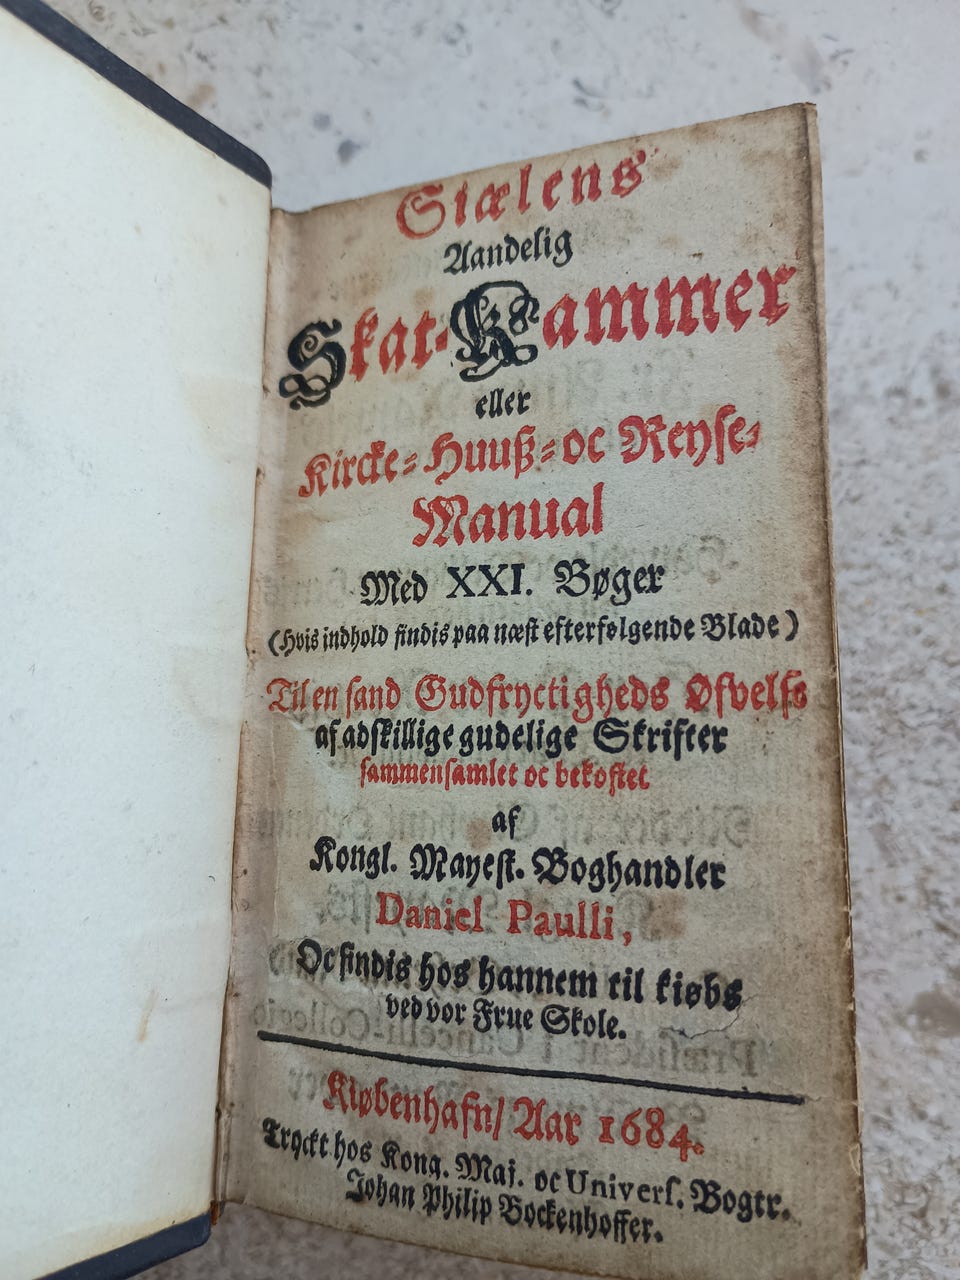 Siælens
Aandelig
Skat-Kammer
eller
Kircke-Huuß-oc Reyse-
Manual
Med XXI. Bøger
(Hvis indhold findis paa næst efterfølgende Blade)
Til en sand Gudfryctigheds Øfvelse
af adskillige gudelige Skrifter
sammensamlet oc bekostet
af
Kongl. Mayest. Boghandler
Daniel Paulli,
Oc findis hos hannem til kiøbs
ved vor Frue Skole.
Kiøbenhafn/ Aar 1684.
Tryckt hos Kong. Maj. oc Univers. Bogtr.
Johan Philip Bockenhoffer.